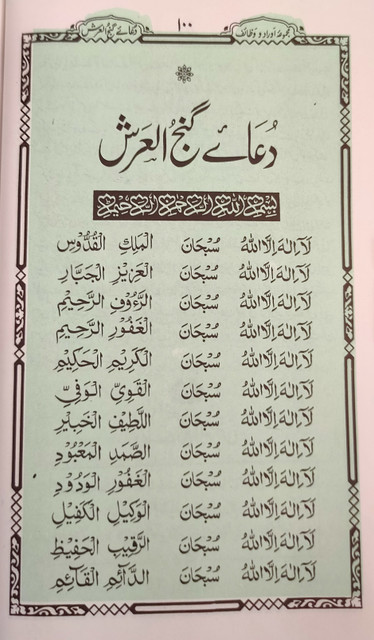 مجموعہ اوراد و وظائف ۱۰۰ دعائے گنج العرش
دُعَائے گنجُ العرش
بِسْمِ اللهِ الرَّحْمٰنِ الرَّحِيْمِ
لَآ اِلٰهَ اِلَّا اللهُ سُبْحَانَ الْمَلِكِ الْقُدُّوْسِ
لَآ اِلٰهَ اِلَّا اللهُ سُبْحَانَ الْعَزِيْزِ الْجَبَّارِ
لَآ اِلٰهَ اِلَّا اللهُ سُبْحَانَ الرَّءُوْفِ الرَّحِيْمِ
لَآ اِلٰهَ اِلَّا اللهُ سُبْحَانَ الْغَفُوْرِ الرَّحِيْمِ
لَآ اِلٰهَ اِلَّا اللهُ سُبْحَانَ الْكَرِيْمِ الْحَكِيْمِ
لَآ اِلٰهَ اِلَّا اللهُ سُبْحَانَ الْقَوِيِّ الْوَفِيِّ
لَآ اِلٰهَ اِلَّا اللهُ سُبْحَانَ اللَّطِيْفِ الْخَبِيْرِ
لَآ اِلٰهَ اِلَّا اللهُ سُبْحَانَ الصَّمَدِ الْمَعْبُوْدِ
لَآ اِلٰهَ اِلَّا اللهُ سُبْحَانَ الْغَفُوْرِ الْوَدُوْدِ
لَآ اِلٰهَ اِلَّا اللهُ سُبْحَانَ الْوَكِيْلِ الْكَفِيْلِ
لَآ اِلٰهَ اِلَّا اللهُ سُبْحَانَ الرَّقِيْبِ الْحَفِيْظِ
لَآ اِلٰهَ اِلَّا اللهُ سُبْحَانَ الدَّآئِمِ الْقَآئِمِ